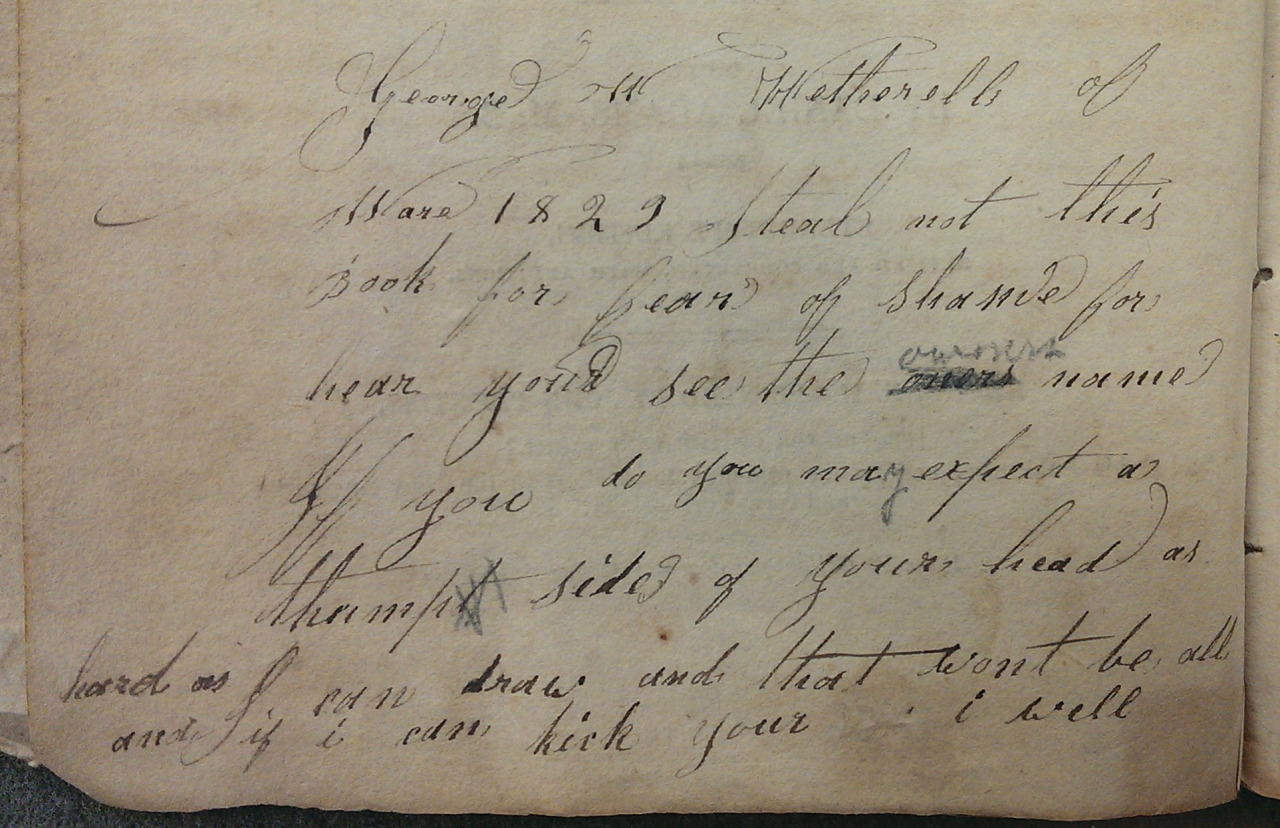 George W Wetherell of
Ware 1829 Steal not this
Book for fear of shame for
hear your see the owners name
If you do you may expect a
thump side of your head as
hard as I can draw and that wont be all
and if i can kick your i well